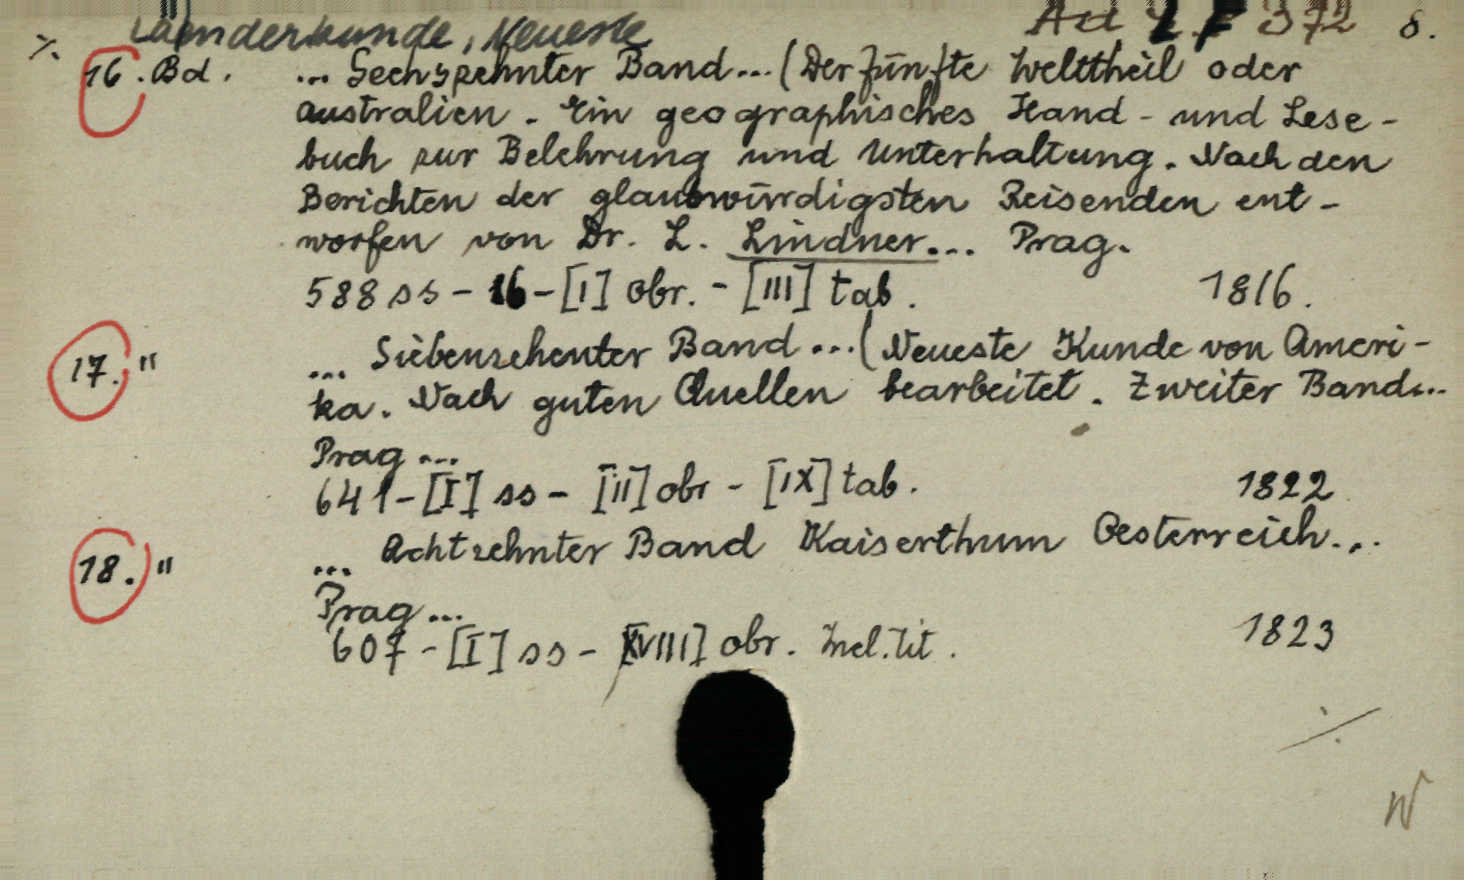 Laenderkunde, Neueste 8.
·/.
16. Bd. ... Sechszehnter Band...(Der fünfte Welttheil oder
australien. Ein geographisches Hand- und Lese-
buch zur Belehrung und Unterhaltung. Nach den
Berichten der glaubwürdigsten Reisenden ent-
worfen von Dr. L. Lindner... Prag.
588 ss - 16 - [I] obr. - [III] tab. 1816.
17. " ... Siebenzehenter Band...(Neueste Kunde von Ameri-
ka. Nach guten Quellen bearbeitet. Zweiter Band...
Prag...
641 - [I] ss - [II] obr - [IX] tab. 1822
18. " ... Achtzehnter Band Kaiserthum Oesterreich...
Prag...
607 - [I] ss - [XVIII] obr. Incl. tit. 1823
·/.
W